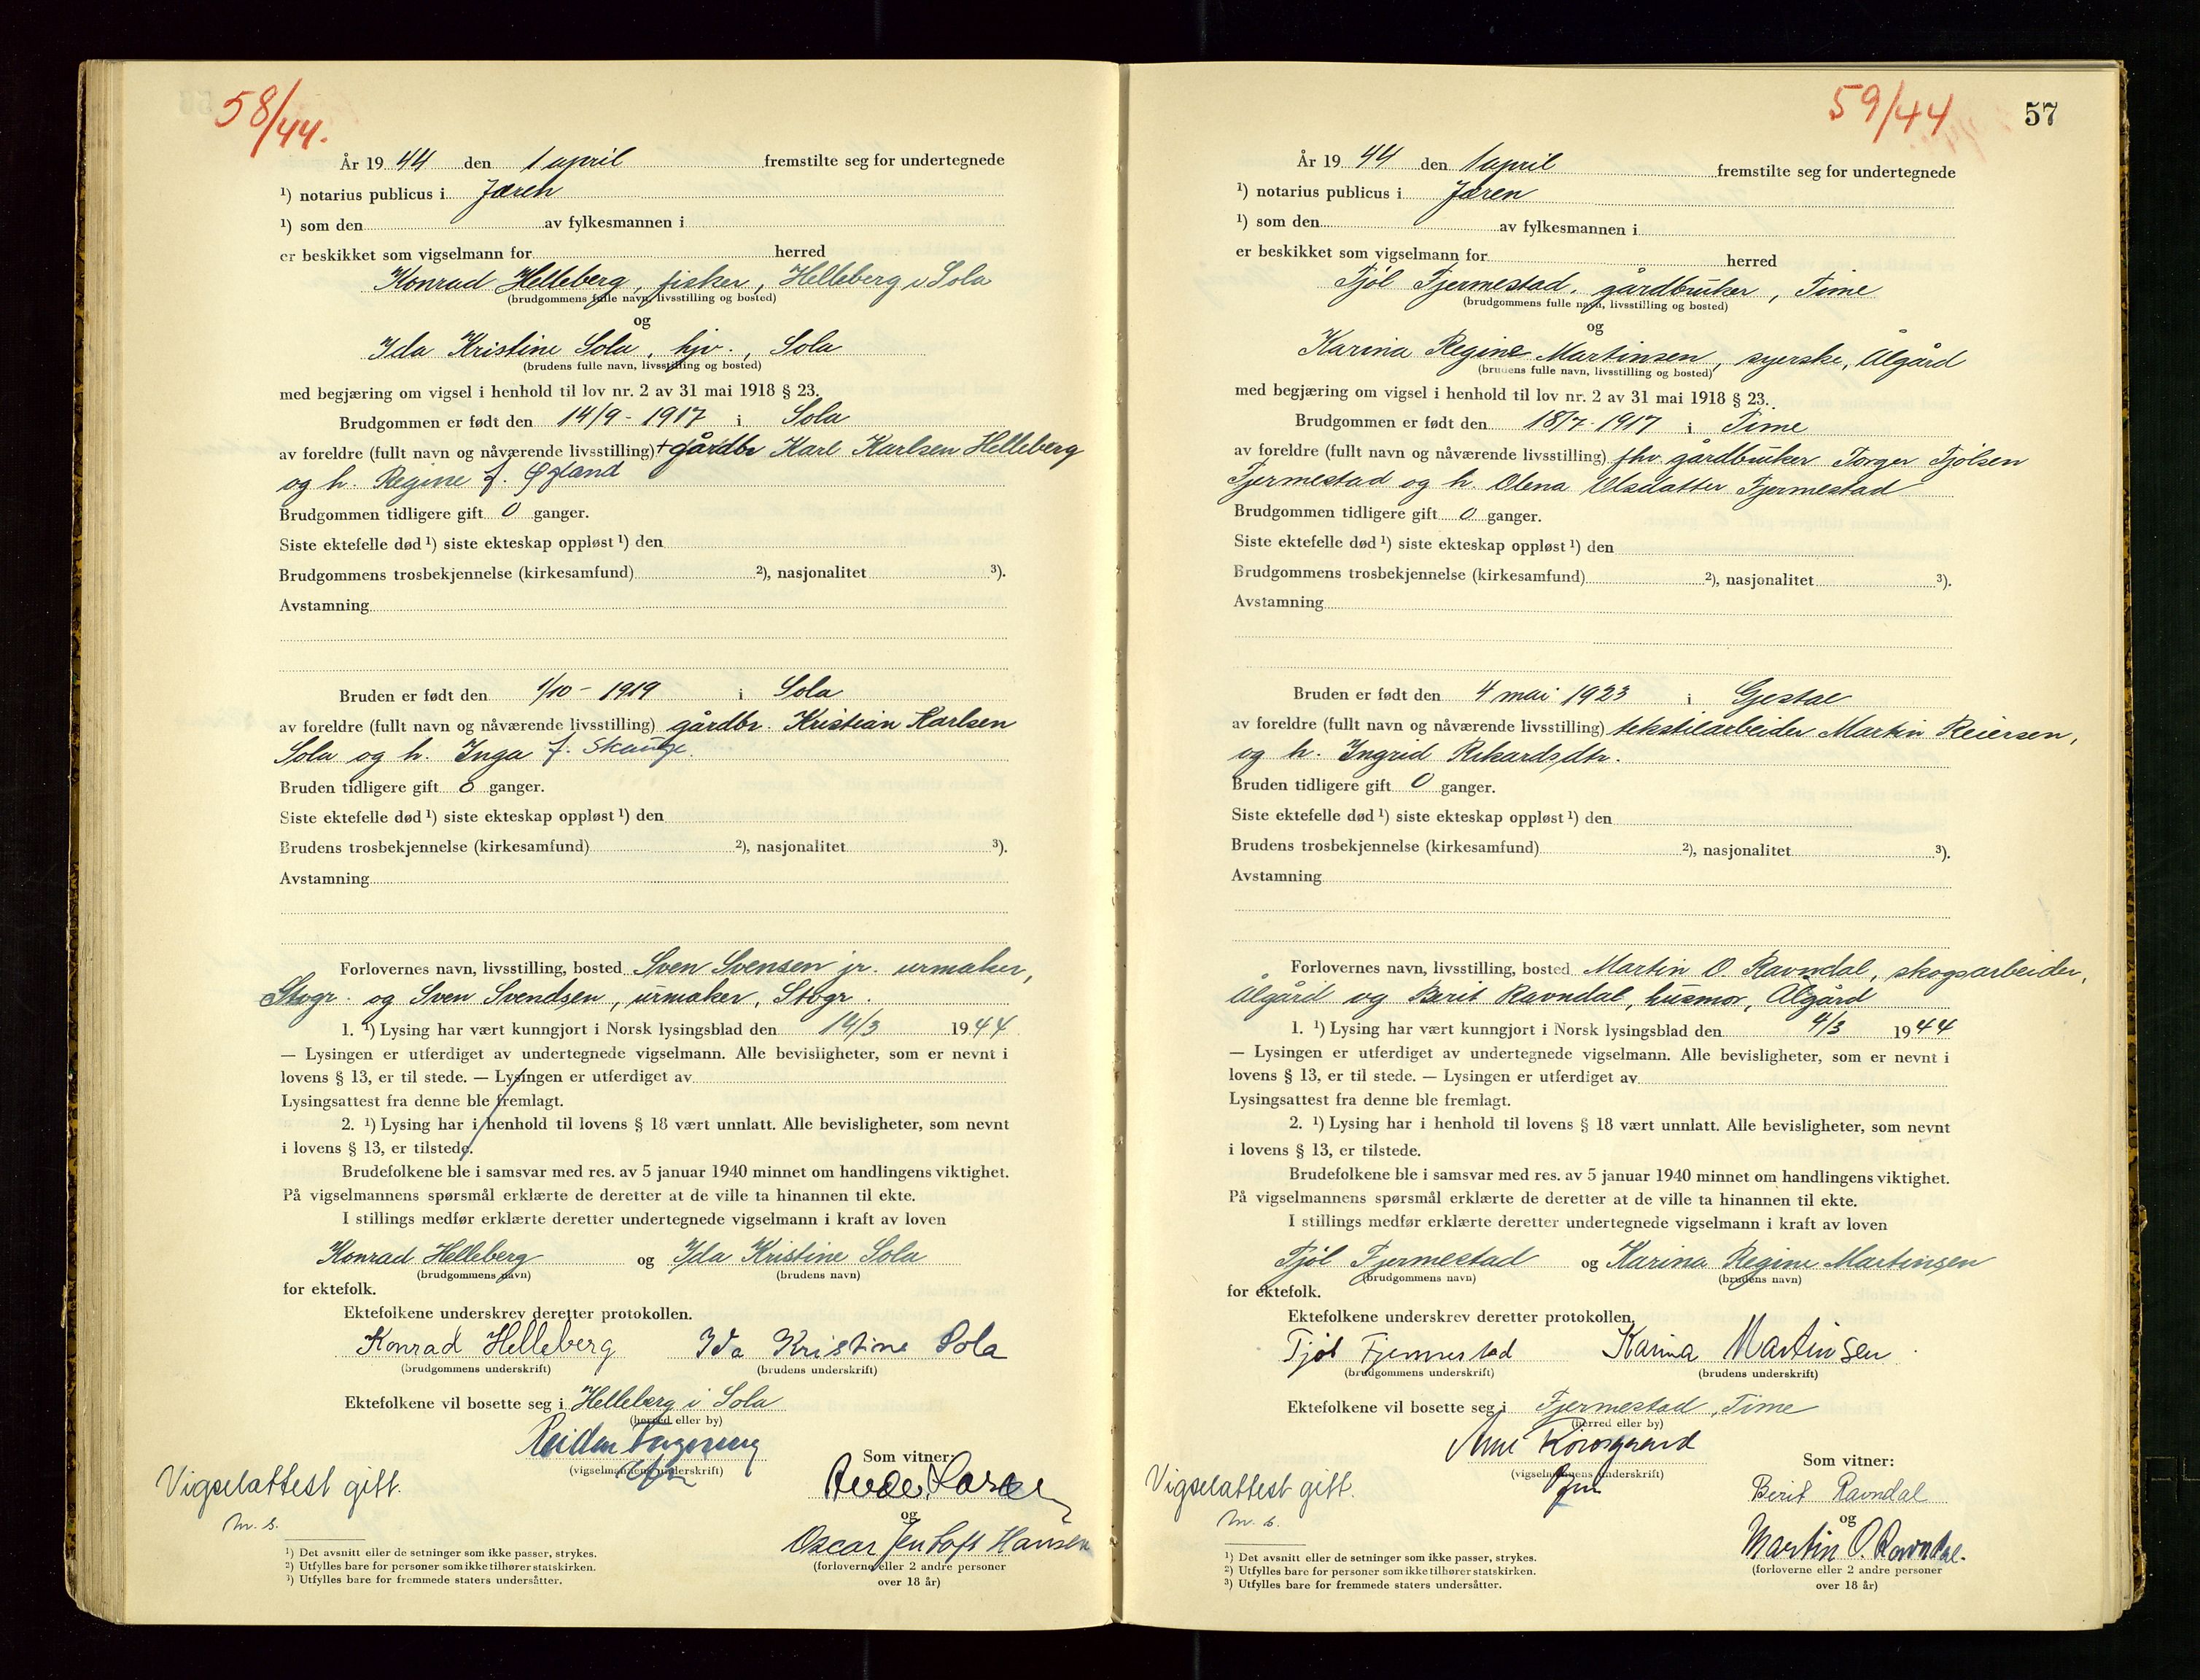 58/44.
År 19 44 den 1 april fremstilte seg for undertegnede
¹) notarius publicus i Jæren
¹) som den av fylkesmannen i
er beskikket som vigselmann for herred
Konrad Helleberg, fisker, Helleberg i Sola
(brudgommens fulle navn, livsstilling og bosted)
og
Ida Kristine Sola, hjv., Sola
(brudens fulle navn, livsstilling og bosted)
med begjæring om vigsel i henhold til lov nr. 2 av 31 mai 1918 § 23.
Brudgommen er født den 14/9 - 1917 i Sola
av foreldre (fullt navn og nåværende livsstilling) + gårdbr Karl Karlsen Helleberg
og h. Regine f. Øgland
Brudgommen tidligere gift 0 ganger.
Siste ektefelle død ¹) siste ekteskap oppløst ¹) den
Brudgommens trosbekjennelse (kirkesamfund) ²), nasjonalitet ³).
Avstamning
Bruden er født den 1/10 - 1919 i Sola
av foreldre (fullt navn og nåværende livsstilling) gårdbr. Kristian Karlsen
Sola og h. Inga f. Skauge.
Bruden tidligere gift 0 ganger.
Siste ektefelle død ¹) siste ekteskap oppløst ¹) den
Brudens trosbekjennelse (kirkesamfund) ²), nasjonalitet ³).
Avstamning
Forlovernes navn, livsstilling, bosted Sven Svensen jr. urmaker,
Stvgr. og Sven Svendsen, urmaker, Stvgr.
1. ¹) Lysing har vært kunngjort i Norsk lysingsblad den 14/3 19 44
— Lysingen er utferdiget av undertegnede vigselmann. Alle bevisligheter, som er nevnt i
lovens § 13, er til stede. — Lysingen er utferdiget av
Lysingsattest fra denne ble fremlagt.
2. ¹) Lysing har i henhold til lovens § 18 vært unnlatt. Alle bevisligheter, som nevnt
i lovens § 13, er tilstede.
Brudefolkene ble i samsvar med res. av 5 januar 1940 minnet om handlingens viktighet.
På vigselmannens spørsmål erklærte de deretter at de ville ta hinannen til ekte.
I stillings medfør erklærte deretter undertegnede vigselmann i kraft av loven
Konrad Helleberg og Ida Kristine Sola
(brudgommens navn) (brudens navn)
for ektefolk.
Ektefolkene underskrev deretter protokollen.
Konrad Helleberg Ida Kristine Sola
(brudgommens underskrift) (brudens underskrift)
Ektefolkene vil bosette seg i Helleberg i Sola
(herred eller by)
(vigselmannens underskrift)
Som vitner:
Vigselattest gitt.
m. s.
og
Oscar Jentoft Hansen
(forloverne eller 2 andre personer
over 18 år)
¹) Det avsnitt eller de setninger som ikke passer, strykes.
²) Utfylles bare for personer som ikke tilhører statskirken.
³) Utfylles bare for fremmede staters undersåtter.
59/44 57
År 19 44 den 1 april fremstilte seg for undertegnede
¹) notarius publicus i Jæren
¹) som den av fylkesmannen i
er beskikket som vigselmann for herred
Tjøl Fjermestad, gårdbruker, Time
(brudgommens fulle navn, livsstilling og bosted)
og
Karina Regine Martinsen, syerske, Ålgård
(brudens fulle navn, livsstilling og bosted)
med begjæring om vigsel i henhold til lov nr. 2 av 31 mai 1918 § 23.
Brudgommen er født den 18/7 - 1917 i Time
av foreldre (fullt navn og nåværende livsstilling) fhv. gårdbruker Torger Tjølsen
Fjermestad og h. Olena Olsdatter Fjermestad
Brudgommen tidligere gift 0 ganger.
Siste ektefelle død ¹) siste ekteskap oppløst ¹) den
Brudgommens trosbekjennelse (kirkesamfund) ²), nasjonalitet ³).
Avstamning
Bruden er født den 4 mai 1923 i Gjestal
av foreldre (fullt navn og nåværende livsstilling) tekstilarbeider Martin Reiersen,
og h. Ingrid Rikardsdtr.
Bruden tidligere gift 0 ganger.
Siste ektefelle død ¹) siste ekteskap oppløst ¹) den
Brudens trosbekjennelse (kirkesamfund) ²), nasjonalitet ³).
Avstamning
Forlovernes navn, livsstilling, bosted Martin O. Ravndal, skogsarbeider,
Ålgård og Berit Ravndal, husmor, Ålgård
1. ¹) Lysing har vært kunngjort i Norsk lysingsblad den 4/3 19 44
— Lysingen er utferdiget av undertegnede vigselmann. Alle bevisligheter, som er nevnt i
lovens § 13, er til stede. — Lysingen er utferdiget av
Lysingsattest fra denne ble fremlagt.
2. ¹) Lysing har i henhold til lovens § 18 vært unnlatt. Alle bevisligheter, som nevnt
i lovens § 13, er tilstede.
Brudefolkene ble i samsvar med res. av 5 januar 1940 minnet om handlingens viktighet.
På vigselmannens spørsmål erklærte de deretter at de ville ta hinannen til ekte.
I stillings medfør erklærte deretter undertegnede vigselmann i kraft av loven
Tjøl Fjermestad og Karina Regine Martinsen
(brudgommens navn) (brudens navn)
for ektefolk.
Ektefolkene underskrev deretter protokollen.
Tjøl Fjermestad Karina Martinsen
(brudgommens underskrift) (brudens underskrift)
Ektefolkene vil bosette seg i Fjermestad, Time
(herred eller by)
(vigselmannens underskrift)
Som vitner:
Vigselattest gitt.
m. s.
Berit Ravndal
og
Martin O. Ravndal.
(forloverne eller 2 andre personer
over 18 år)
¹) Det avsnitt eller de setninger som ikke passer, strykes.
²) Utfylles bare for personer som ikke tilhører statskirken.
³) Utfylles bare for fremmede staters undersåtter.